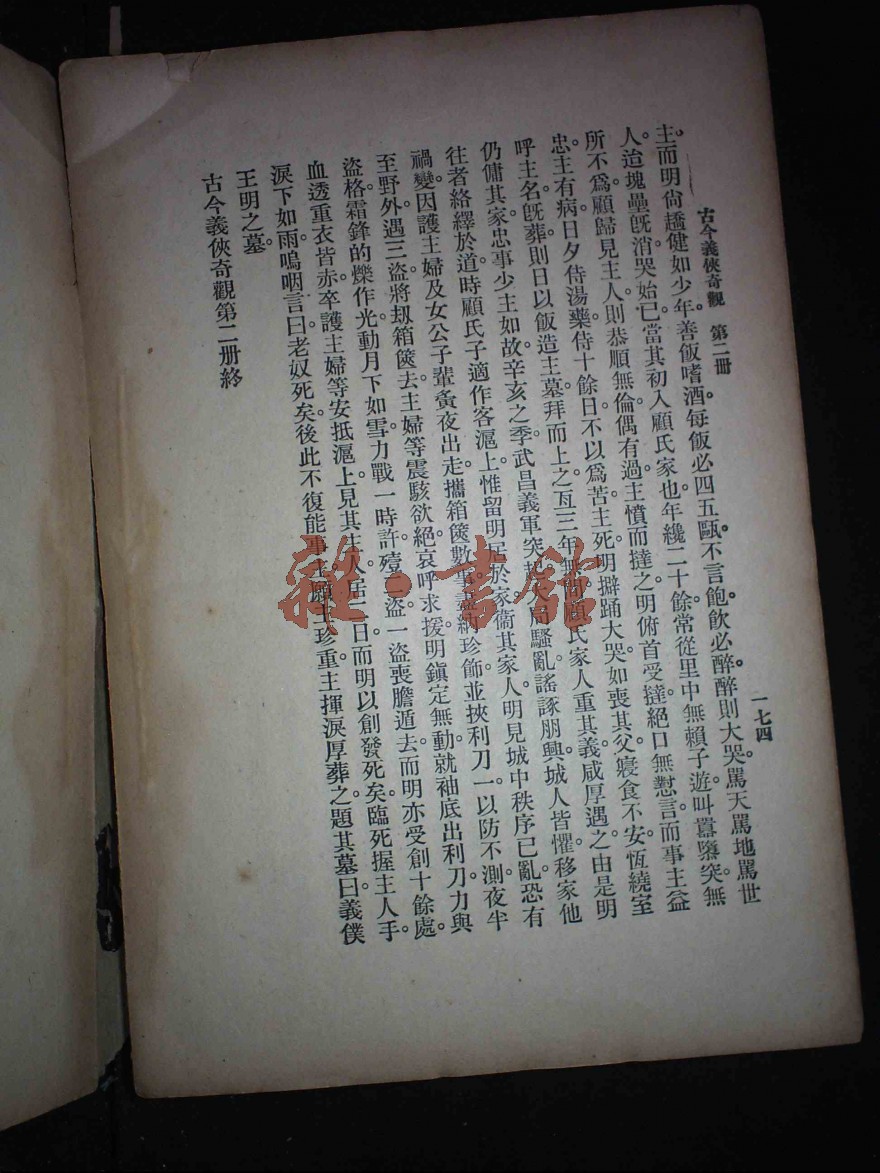 古今義俠奇觀　第二册
一七四
主而明尙趫健如少年。善飯嗜酒。每飯必四五甌。不言飽。飮必醉。醉則大哭。罵天罵地罵世
人。迨塊壘旣消。哭始已。當其初入顧氏家也。年纔二十餘。常從里中無賴子遊。叫囂隳突。無
所不爲。顧歸見主人。則恭順無倫。偶有過。主憤而撻之。明俯首受撻。絕口無懟言。而事主益
忠。主有病。日夕侍湯藥。侍十餘日。不以爲苦。主死。明擗踊大哭。如喪其父。寢食不安。恆繞室
呼主名。旣葬。則日以飯造主墓。拜而上之。亙三年無間。顧氏家人重其義。咸厚遇之。由是明
仍傭其家。忠事少主如故。辛亥之季。武昌義軍突起。大局騷亂。謠諑朋興。城人皆懼。移家他
往者絡繹於道。時顧氏子適作客滬上。惟留明居於家。衞其家人。明見城中秩序已亂。恐有
禍變。因護主婦及女公子輩。夤夜出走。攜箱篋數事。盡納珍飾。並挾利刀一。以防不測。夜半
至野外。遇三盜。將刼箱篋去。主婦等震駭欲絕。哀呼求援。明鎭定無動。就袖底出利刀。力與
盜格。霜鋒的爍。作光動月下如雪。力戰一時許。殪二盜。一盜喪膽遁去。而明亦受創十餘處。
血透重衣皆赤。卒護主婦等安抵滬上。見其主人。居二日。而明以創發死矣。臨死。握主人手。
淚下如雨。嗚咽言曰。老奴死矣。後此不復能事主。願主珍重。主揮淚厚葬之。題其墓曰。義僕
王明之墓。
古今義俠奇觀第二册終
雜·書館